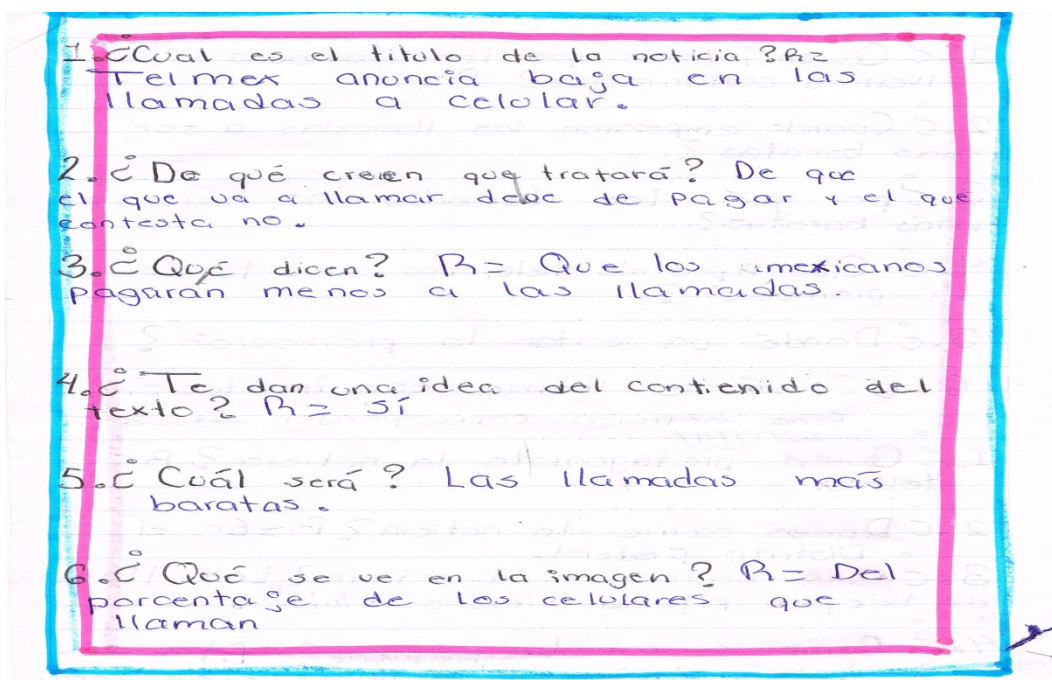 1.¿Cual es el titulo de la noticia?R=
Telmex anuncia baja en las
llamadas a celular.
2.¿De qué creen que tratará? De que
el que va a llamar debe de pagar y el que
contesta no.
3.¿Qué dicen? R= Que los mexicanos
pagaran menos a las llamadas.
4.¿Te dan una idea del contenido del
texto? R= sí
5.¿Cuál será? Las llamadas más
baratas.
6.¿Qué se ve en la imagen? R= Del
porcentage de los celulares que
llaman